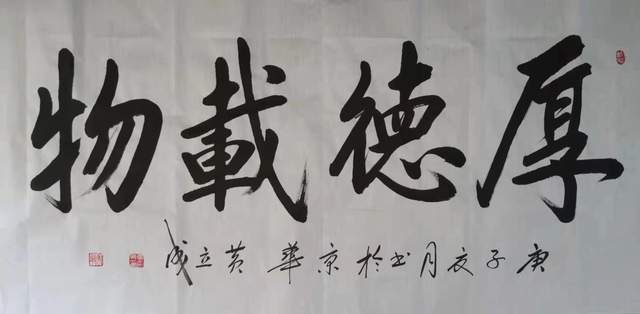 厚德載物
庚子夏月书於京華 黄立成